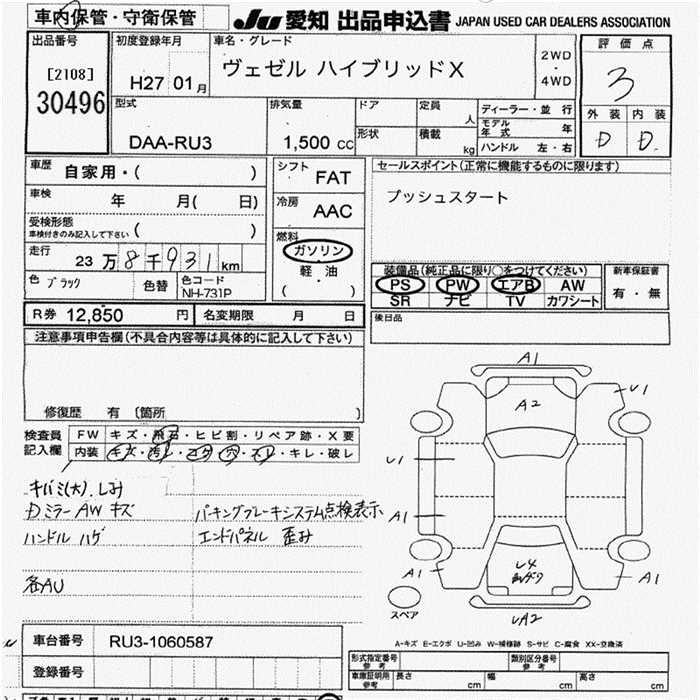 車内保管・守衛保管
JU 愛知 出品申込書 JAPAN USED CAR DEALERS ASSOCIATION
出品番号
[2108]
30496
初度登録年月
H27 01月
車名・グレード
ヴェゼル ハイブリッドX
2WD
・
4WD
評価点
3
外装 内装
D D
型式
DAA-RU3
排気量
1,500 cc
ドア
形状
定員 人
積載 kg
ディーラー・並行
モデル年式 年
ハンドル 左・右
車歴 自家用・( )
車検 年 月( 日)
受検形態
車検付きのみ記入して下さい ( )
走行 23万8千931km
色 ブラック
色替
色コード
NH-731P
シフト
FAT
冷房
AAC
燃料
ガソリン
軽・油
( )
セールスポイント(正常に機能するものに限ります)
プッシュスタート
装備品(純正品に限り○をつけてください)
PS PW エアB AW
SR ナビ TV カワシート
新車保証書
有・無
R券 12,850 円
名変期限 月 日
後日品
注意事項申告欄(不具合内容等は具体的に記入して下さい)
修復歴 有 〔箇所 〕
検査員
記入欄
FW キズ・飛石・ヒビ割・リペア跡・X要
内装 キズ・汚レ・コゲ・穴・スレ・キレ・破レ
キバミ(大).しみ
Dミラー AW キズ
ハンドル ハゲ
各AU
パーキングブレーキシステム点検表示
エンドパネル 歪み
A1
A2
U1
U1
A1
A1
A1
U4
UA2
スペア
A-キズ E-エクボ U-凹み W-補修跡 S-サビ C-腐食 XX-交換済
車台番号 RU3-1060587
登録番号
形式指定番号
参考
類別区分番号
参考
車庫証明用
参考
長さ cm
幅 cm
高さ cm